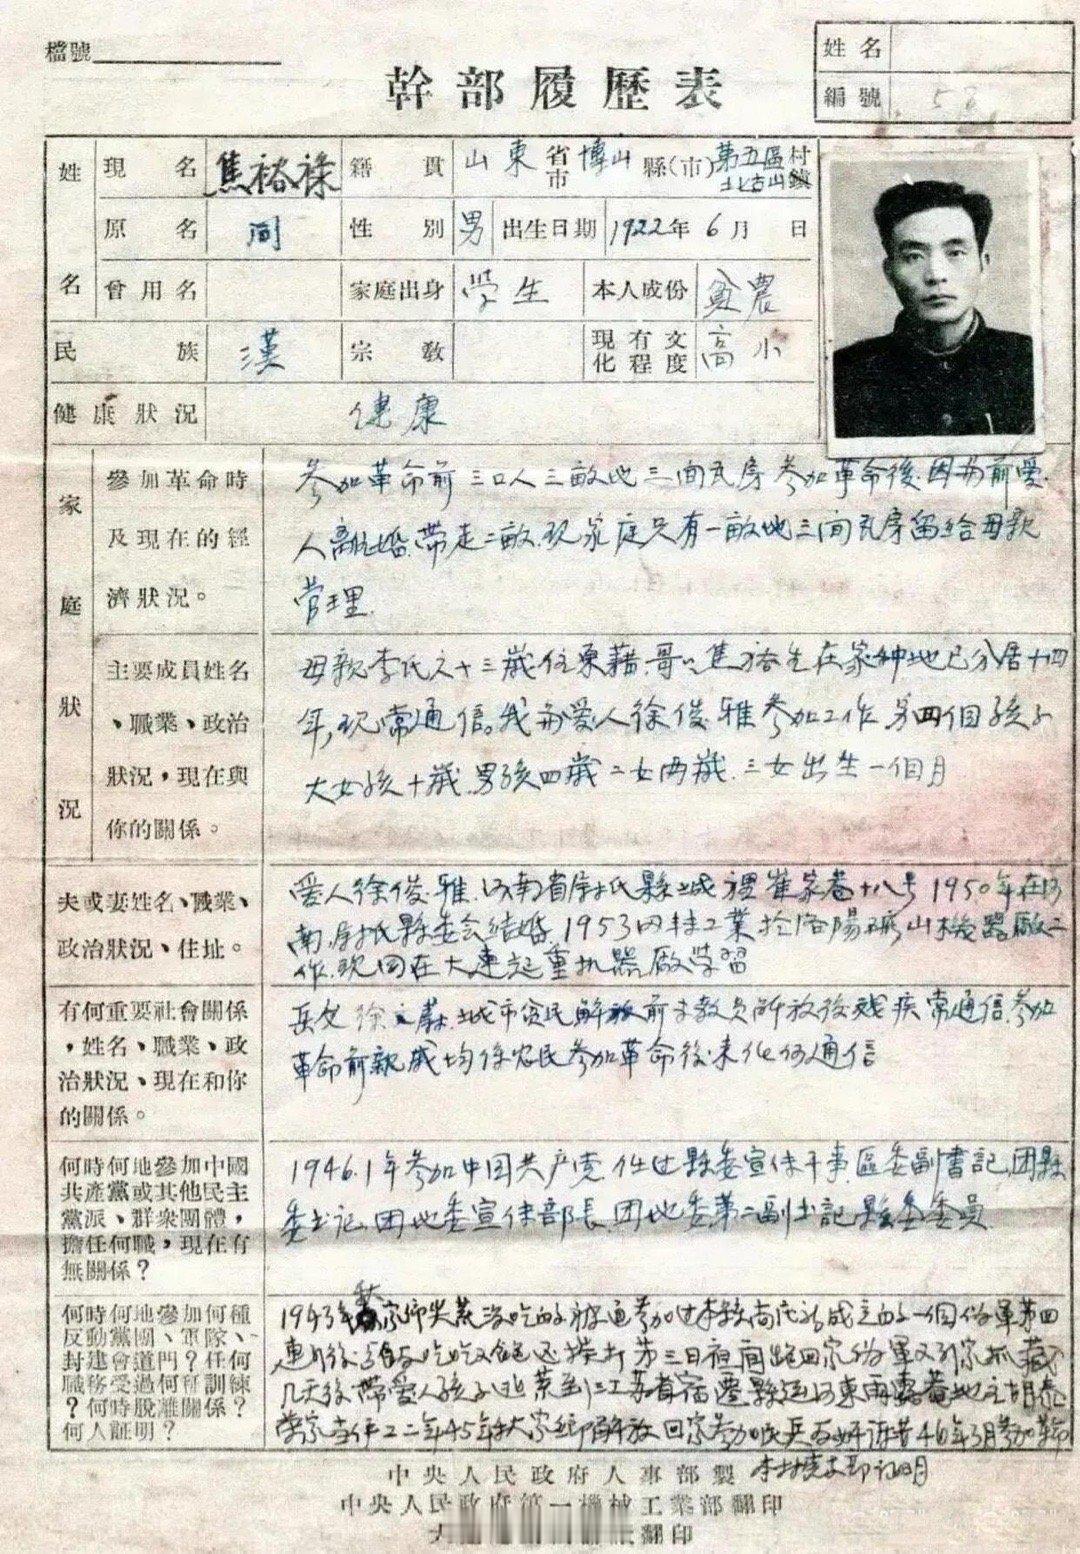 檔號
姓名
編號 53
幹部履歷表
姓名 現名 焦裕祿 籍貫 山東省市博山縣(市)第五區北古山村鎮
原名 同 性別 男 出生日期 1922年6月 日
曾用名 家庭出身 学生 本人成份 貧農
民族 漢 宗教 現有文化程度 高小
健康狀況 健康
家庭狀況
參加革命時及現在的經濟狀況。
参加革命前三口人三畝地三间瓦房参加革命後因为前爱
人離婚帶走二畝.现家庭只有一畝地三间瓦房留给母親
管理.
主要成員姓名、職業、政治狀況,現在與你的關係。
母親李氏六十三歲住東藉.哥哥焦裕生在家种地已分居十四
年,现常通信。我和爱人徐俊雅参加工作另四個孩子
大女孩十歲.男孩四歲二女两歲.三女出生一個月
夫或妻姓名、職業、政治狀況、住址。
爱人徐俊雅.河南省尉氏縣城裡崔家巷十八号1950年在河
南尉氏縣委会結婚1953同轉工業於洛陽礦山機器廠工
作.现同在大連起重机器廠学習
有何重要社會關係,姓名、職業、政治狀況、現在和你的關係。
岳父徐 城市贫民解放前 教員解放後残疾常通信.参加
革命前親戚均係农民参加革命後未任何通信
何時何地參加中國共產黨或其他民主黨派、群衆團體,擔任何職,現在有無關係?
1946.1年参加中国共产党.任过縣委宣传干事.區委副書記.团縣
委书记.团地委宣传部長.团地委第二副书記縣委委員
何時何地參加何種反動黨團、軍隊、封建會道門?任何職務受過何種訓練?何時脫離關係?何人証明?
1943年 家 荒没吃的 参加过本縣 成立的一個伪軍第四
連 吃 第三日夜间跑回家伪軍又到家抓藏
几天後帶爱人孩子 至江苏省宿遷縣 河東 地主胡
家 二年45年秋家鄉解放回家参加民兵 46年3月参加革命
本村 支部证明
中央人民政府人事部製
中央人民政府第一機械工業部翻印
翻印